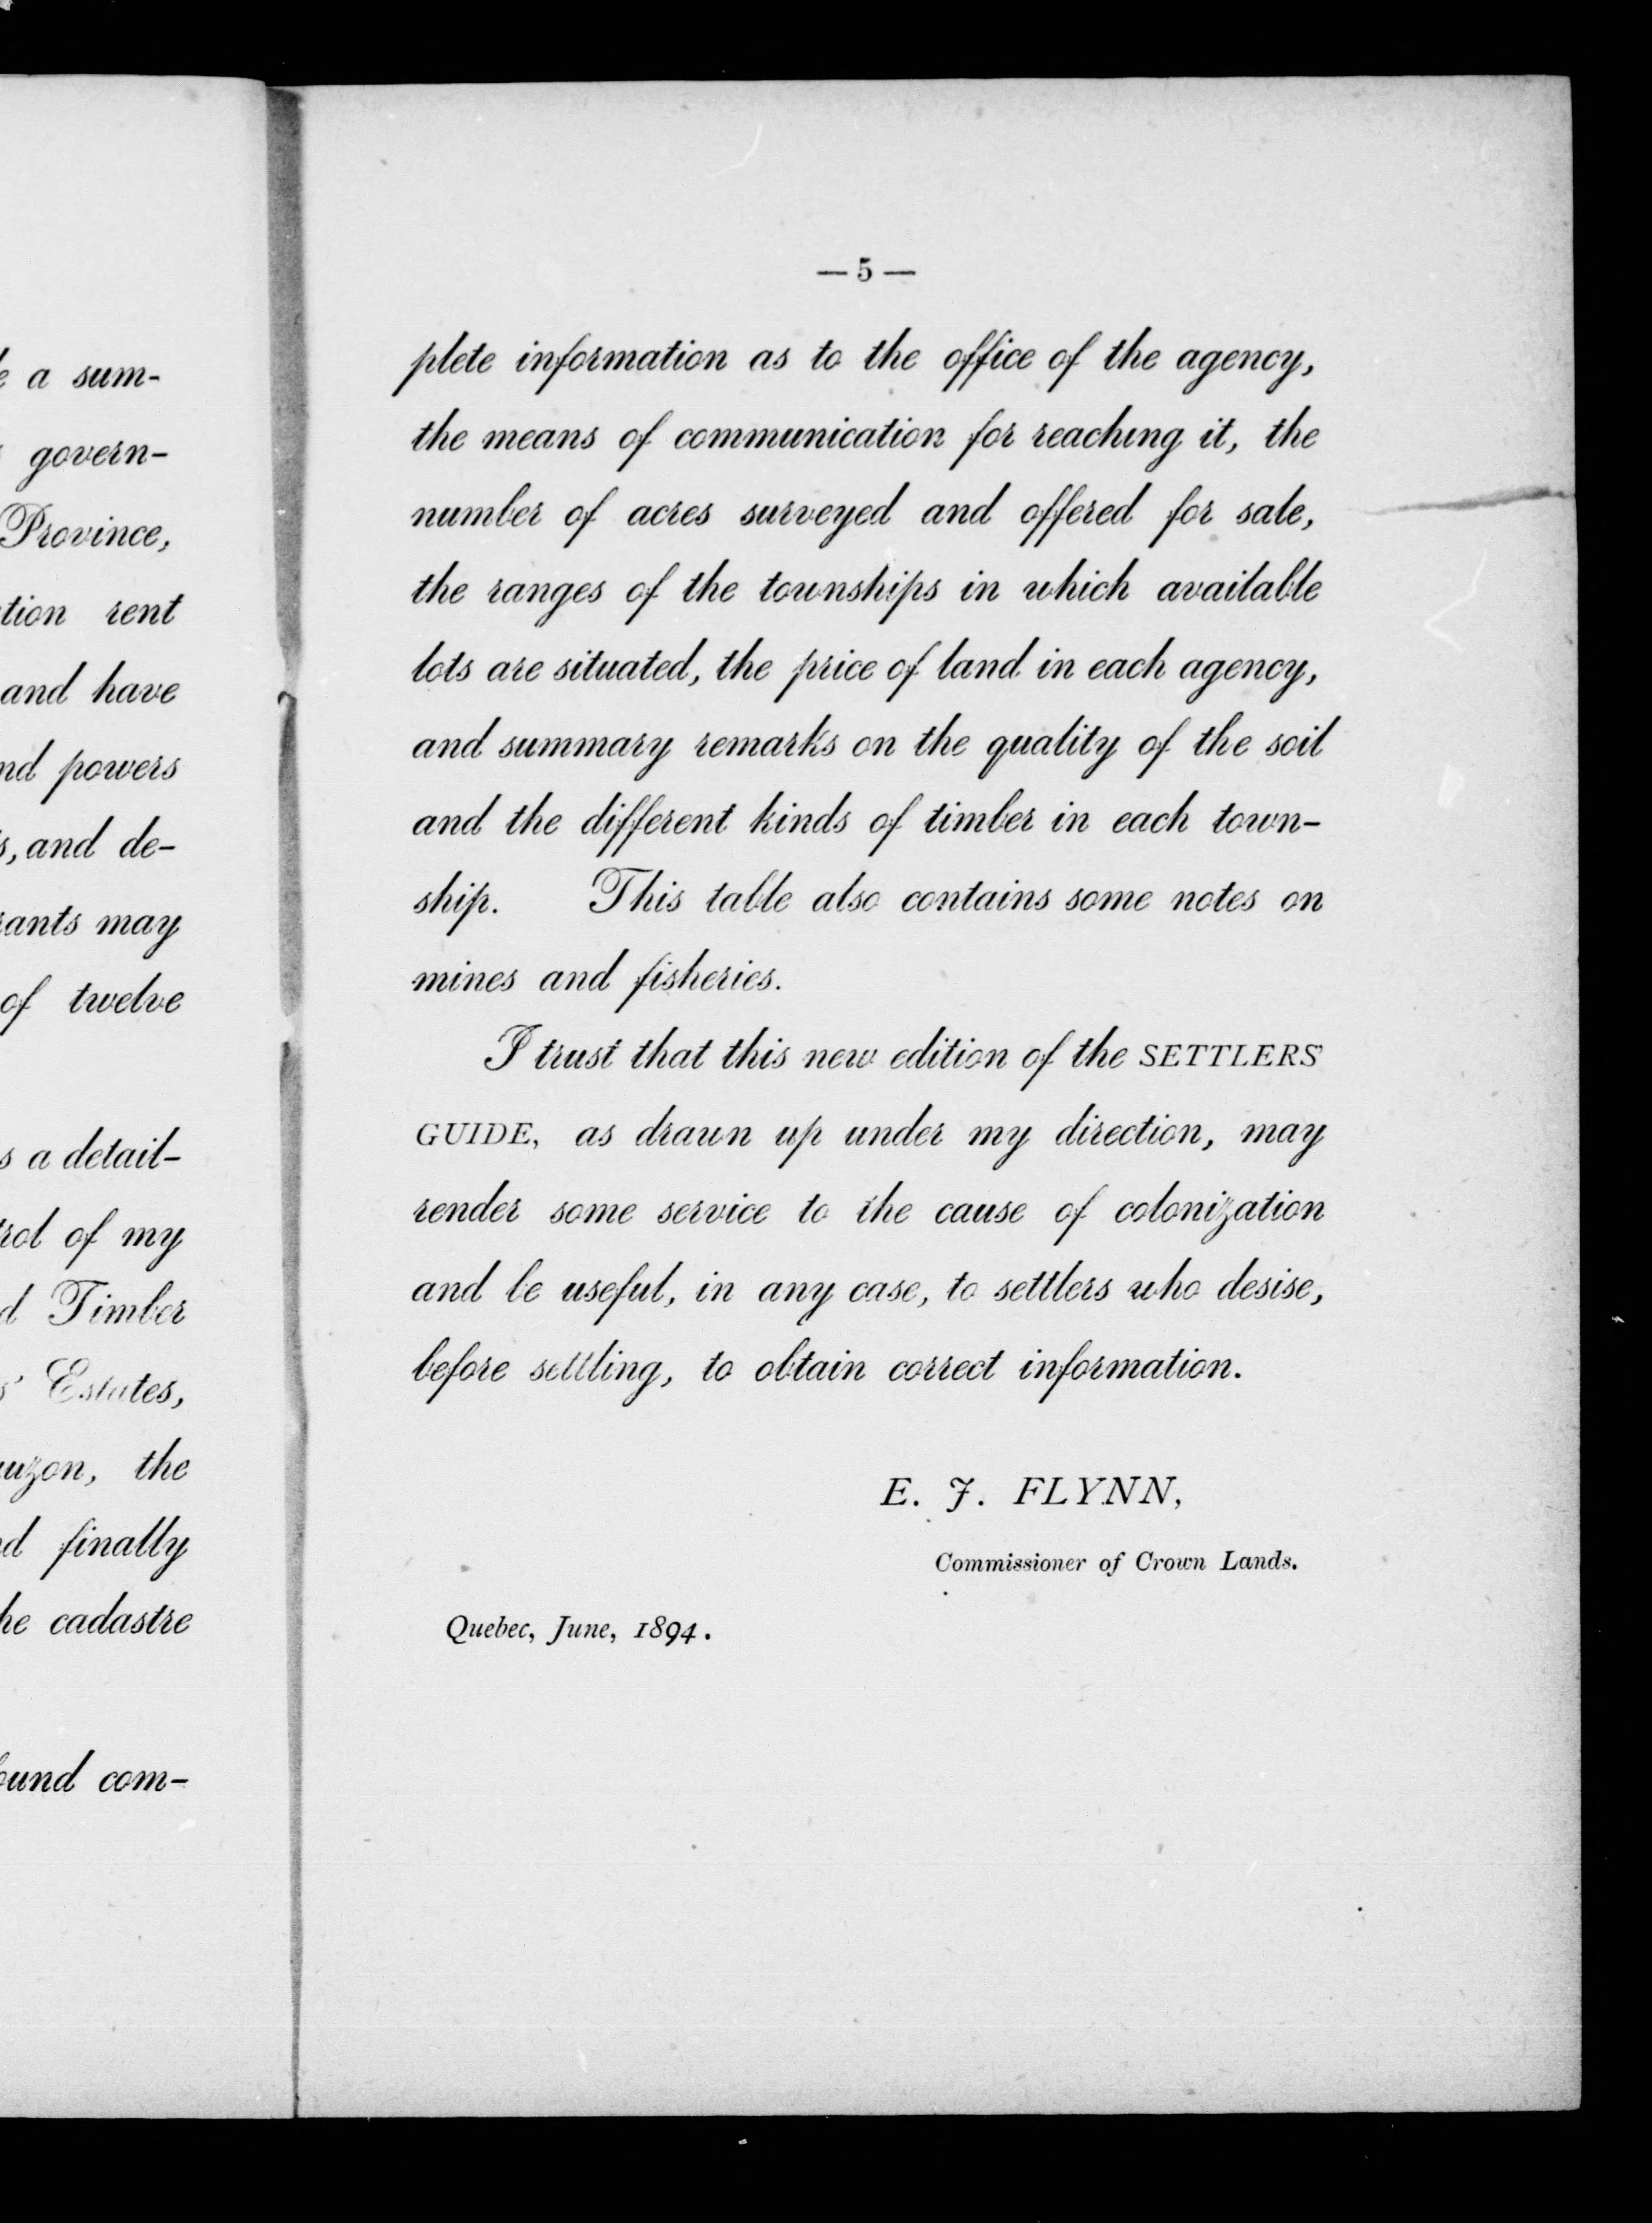 a sum-
govern-
Province,
tion rent
and have
nd powers
s, and de-
rants may
of twelve
s a detail-
rol of my
d Timber
s' Estates,
uzon, the
d finally
he cadastre
ound com-
— 5 —
plete information as to the office of the agency,
the means of communication for reaching it, the
number of acres surveyed and offered for sale,
the ranges of the townships in which available
lots are situated, the price of land in each agency,
and summary remarks on the quality of the soil
and the different kinds of timber in each town-
ship. This table also contains some notes on
mines and fisheries.
I trust that this new edition of the SETTLERS'
GUIDE, as drawn up under my direction, may
render some service to the cause of colonization
and be useful, in any case, to settlers who desise,
before settling, to obtain correct information.
E. J. FLYNN,
Commissioner of Crown Lands.
Quebec, June, 1894.